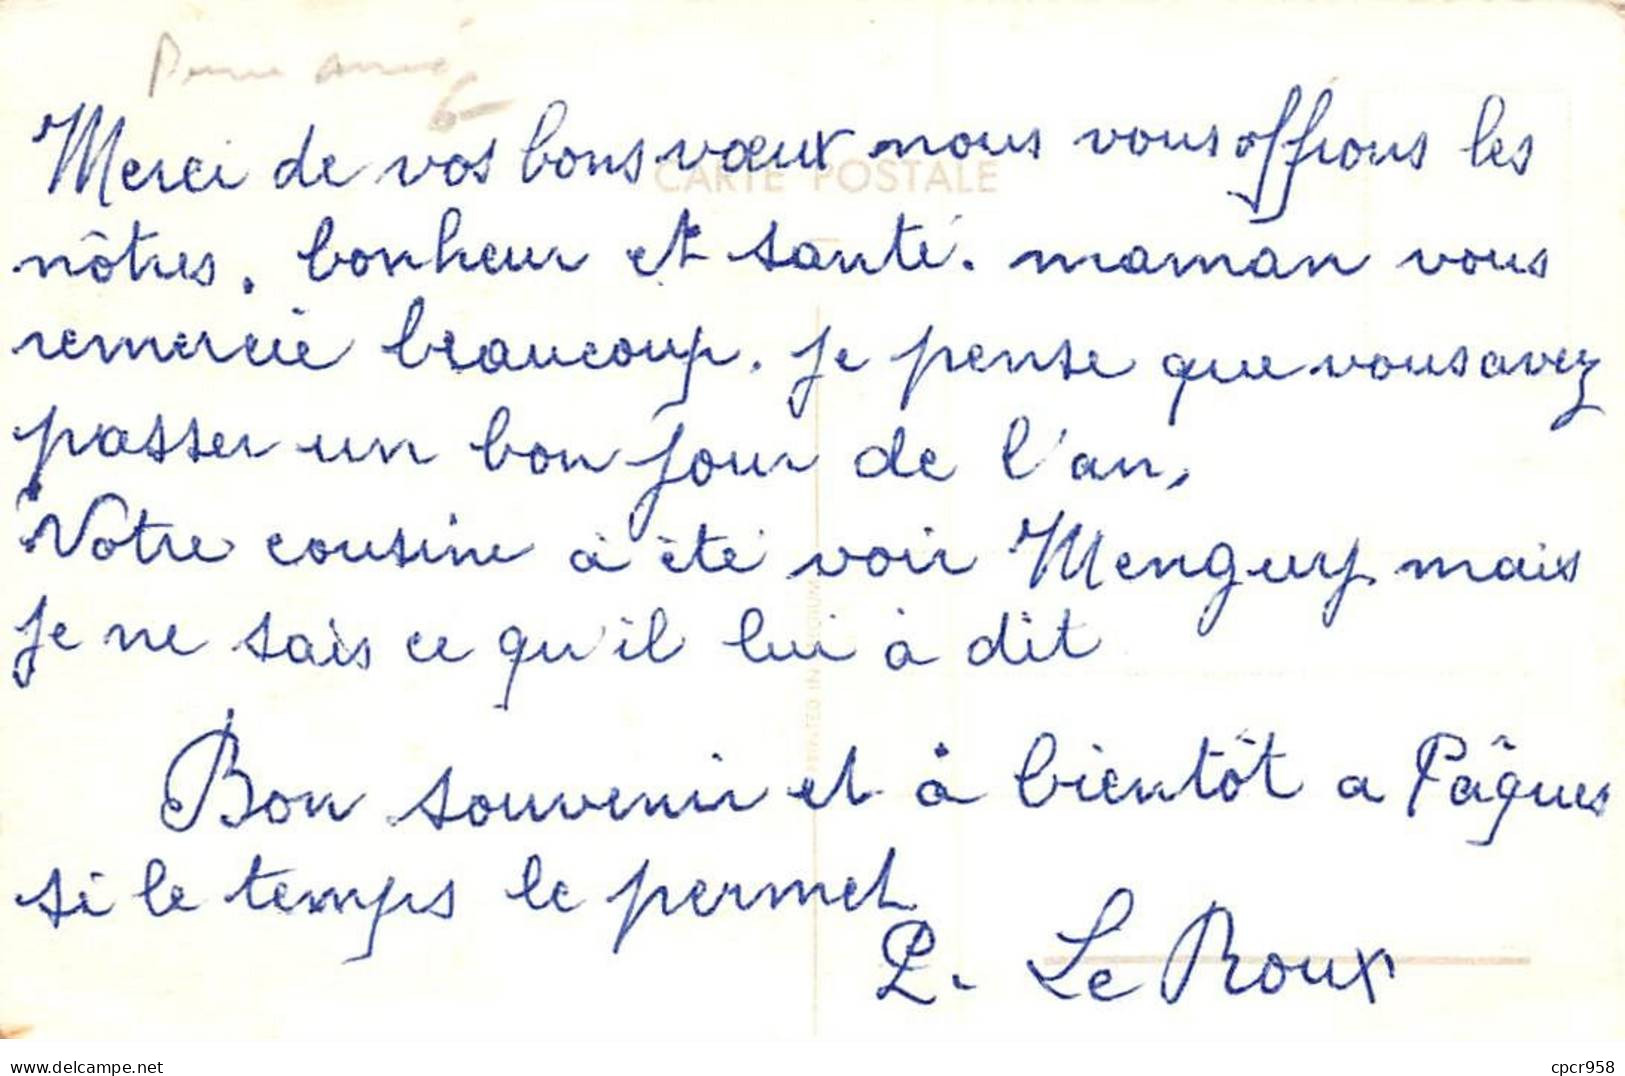 6-
Merci de vos bons vœux nous vous offrons les
CARTE POSTALE
nôtres. bonheur et santé. maman vous
remercie beaucoup. je pense que vous avez
passer un bon jour de l'an,
Votre cousine à été voir Menguy mais
je ne sais ce qu'il lui à dit
PRINTED IN BELGIUM
Bon souvenir et à bientôt a Pâques
si le temps le permet
P. Le Roux
delcampe.net
cpcr958